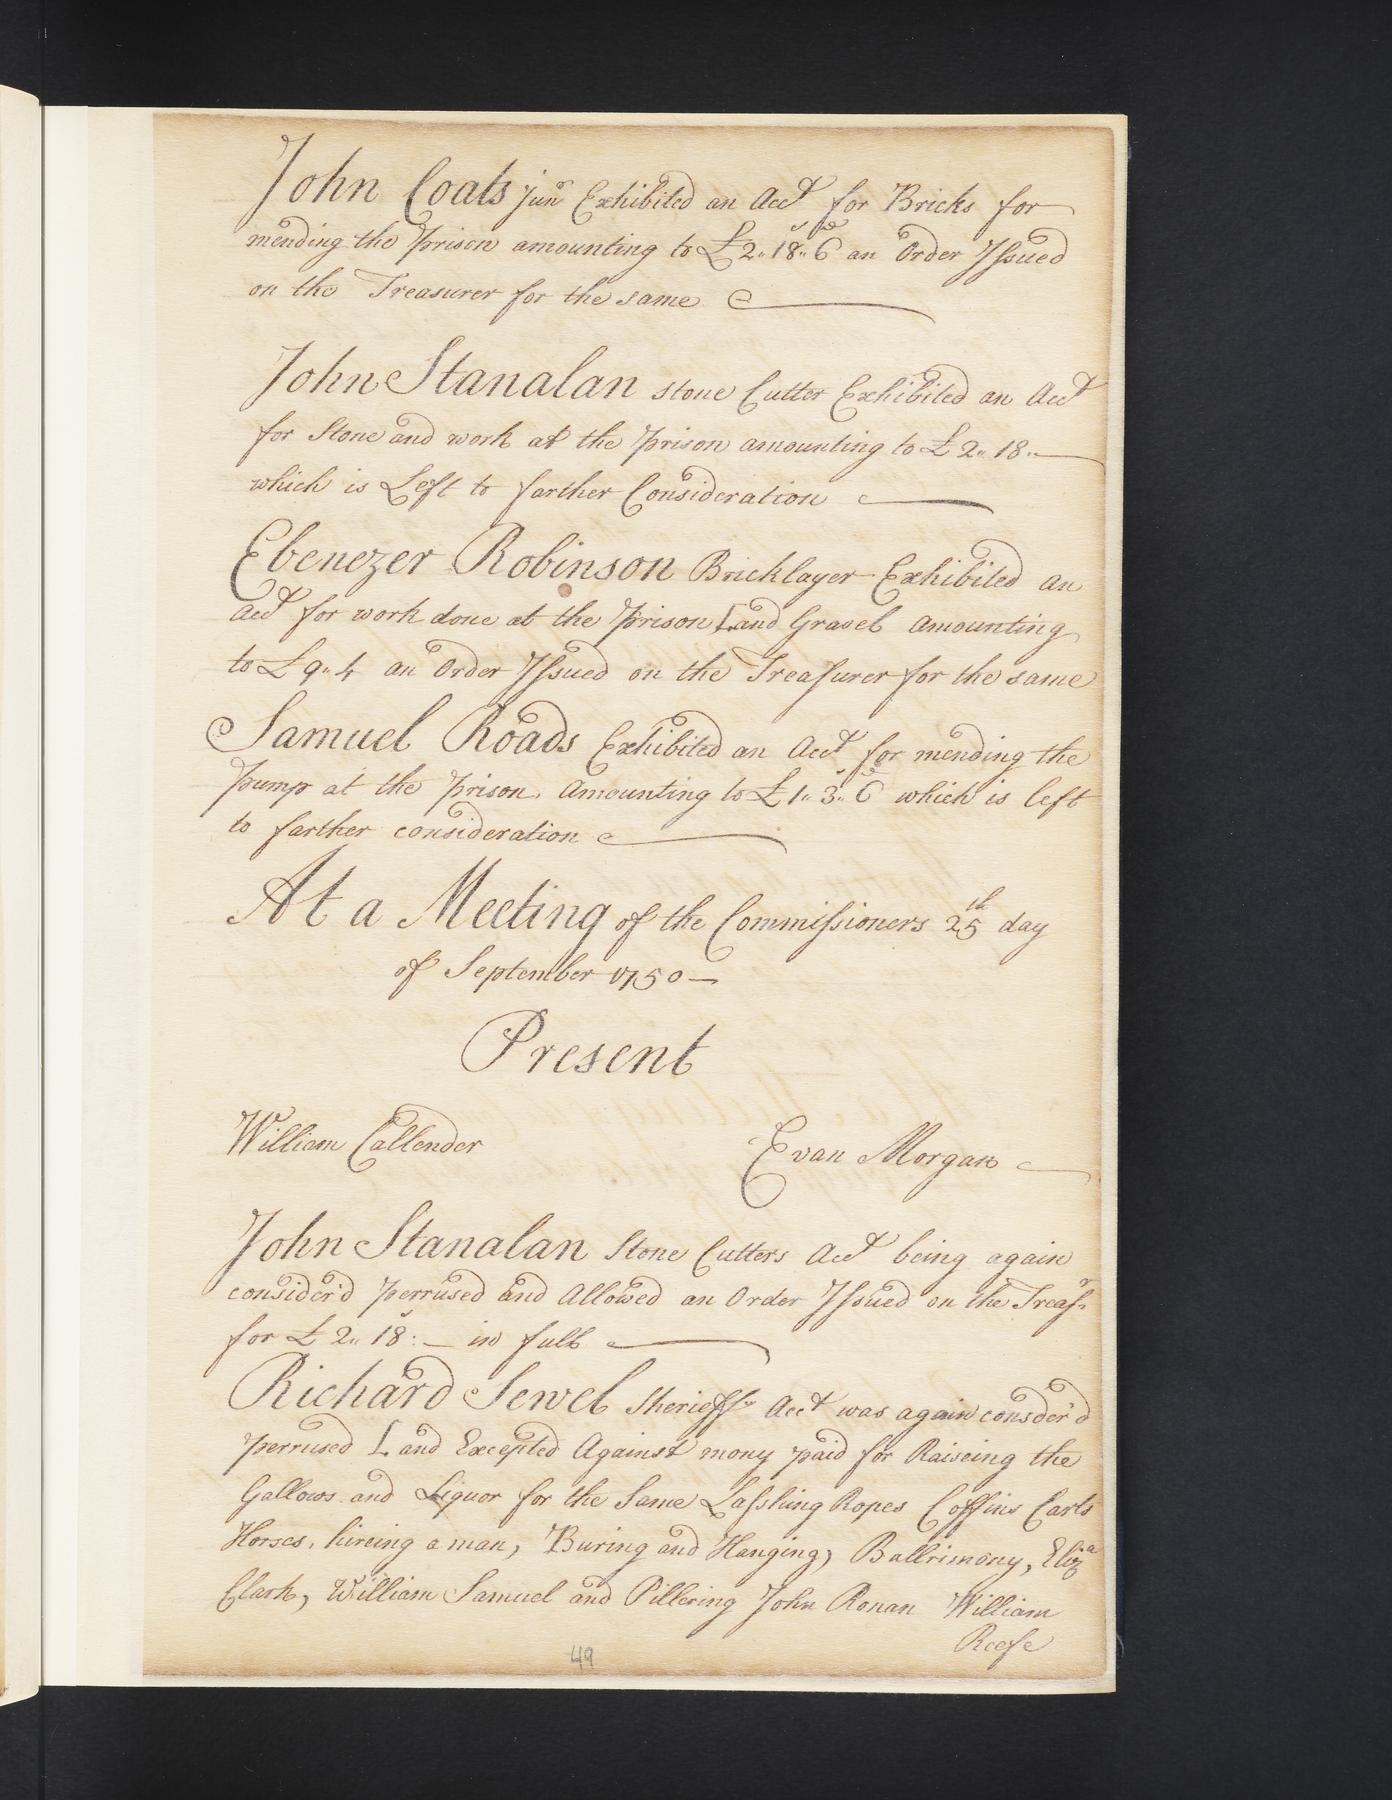 John Coats Junr Exhibited an Acct for Bricks for
mending the Prison amounting to £2"18s"6d an Order Issued
on the Treasurer for the same
John Stanalan stone Cutter Exhibited an Acct
for Stone and work at the Prison amounting to £2"18"—
which is Left to farther Consideration
Ebenezer Robinson Bricklayer Exhibited an
Acct for work done at the Prison [and Gravel Amounting
to £9"4 an Order Issued on the Treasurer for the same
Samuel Roads Exhibited an Acct for mending the
Pump at the Prison. Amounting to £1"3s"6d which is left
to farther consideration
At a Meeting of the Commissioners 25th day
of September 1750—
Present
William Callender
Evan Morgan
John Stanalan Stone Cutters Acct being again
consider'd Perrused and Allowed an Order Issued on the Treasr
for £2"18s:— in full
Richard Sewel Sherieffs Acct was again consder'd
Perrused [and Excepted Against mony paid for Raiseing the
Gallows and Liquor for the Same Lasshing Ropes Coffins Carts
Horses, hireing a man, Buring and Hanging, Ballrimony, Eliza
Clark, William Samuel and Pillering John Ronan William
Reese
49